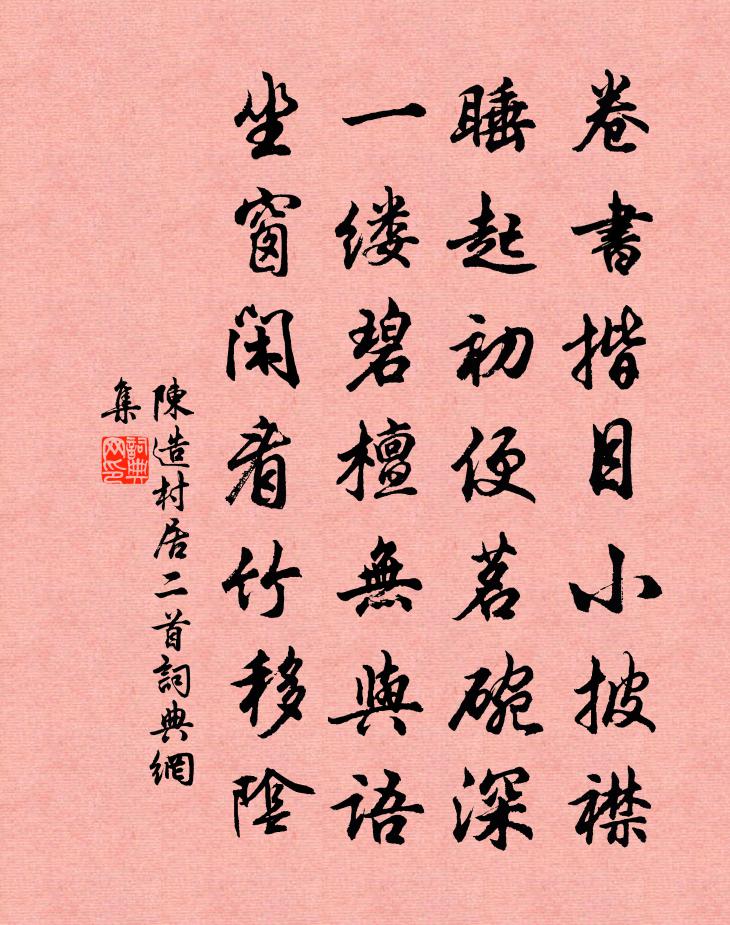 卷書揩目小披襟
睡起初便茗碗深
一缕碧檀無與語
坐窗闲看竹移陰
陳造村居二首詞典網
集
詞典網印